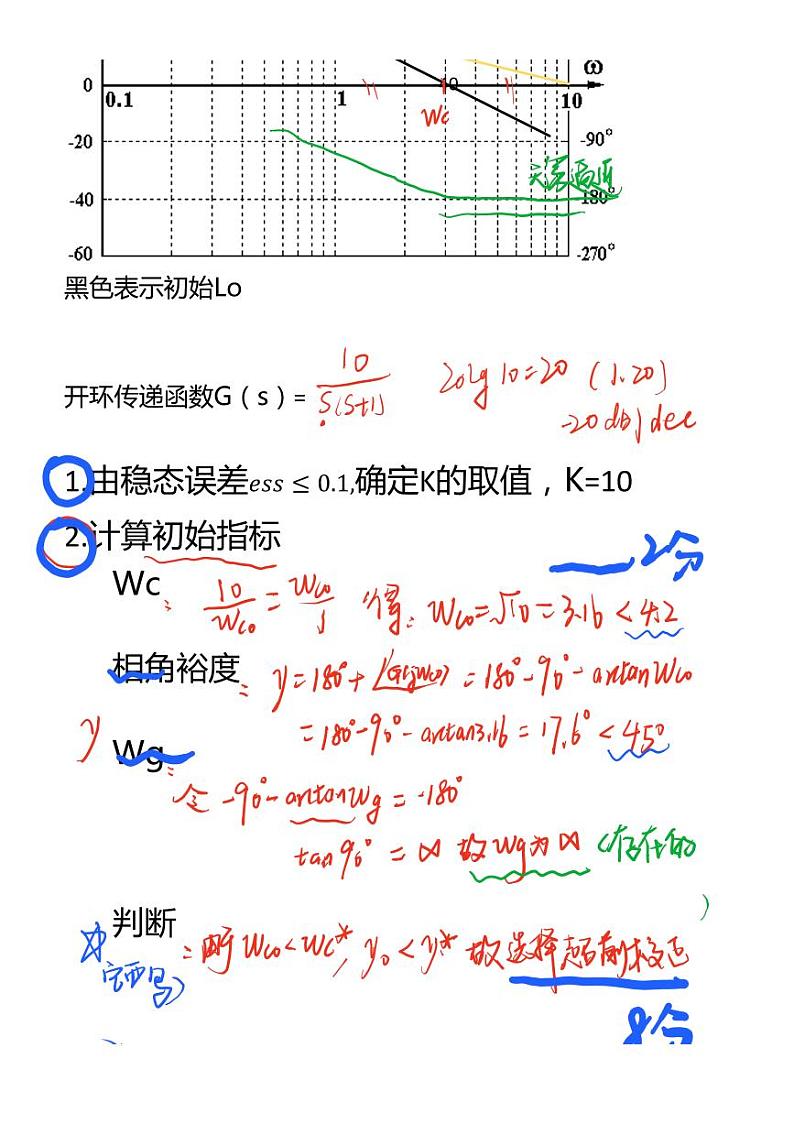 0
0.1 1 0 10 ω
Wc
-20 -90°
-40 -180°
-60 -270°
黑色表示初始Lo
开环传递函数G（s）= 10 / S(S+1) 20lg10=20 (1.20)
-20db/dec
1.由稳态误差ess ≤ 0.1,确定K的取值，K=10
2.计算初始指标
2分
Wc: 10/Wco = Wco/1 得: Wco=√10=3.16<4.2
相角裕度: γ=180°+∠G(jWco) =180°-90°-arctanWco
=180°-90°-arctan3.16=17.6°<45°
γ
Wg:
令 -90°-arctanWg=-180°
tan90°=∞ 故Wg为∞ (存在的
)
判断: 由于Wco<Wc*, γ0<γ* 故选择超前校正
8分